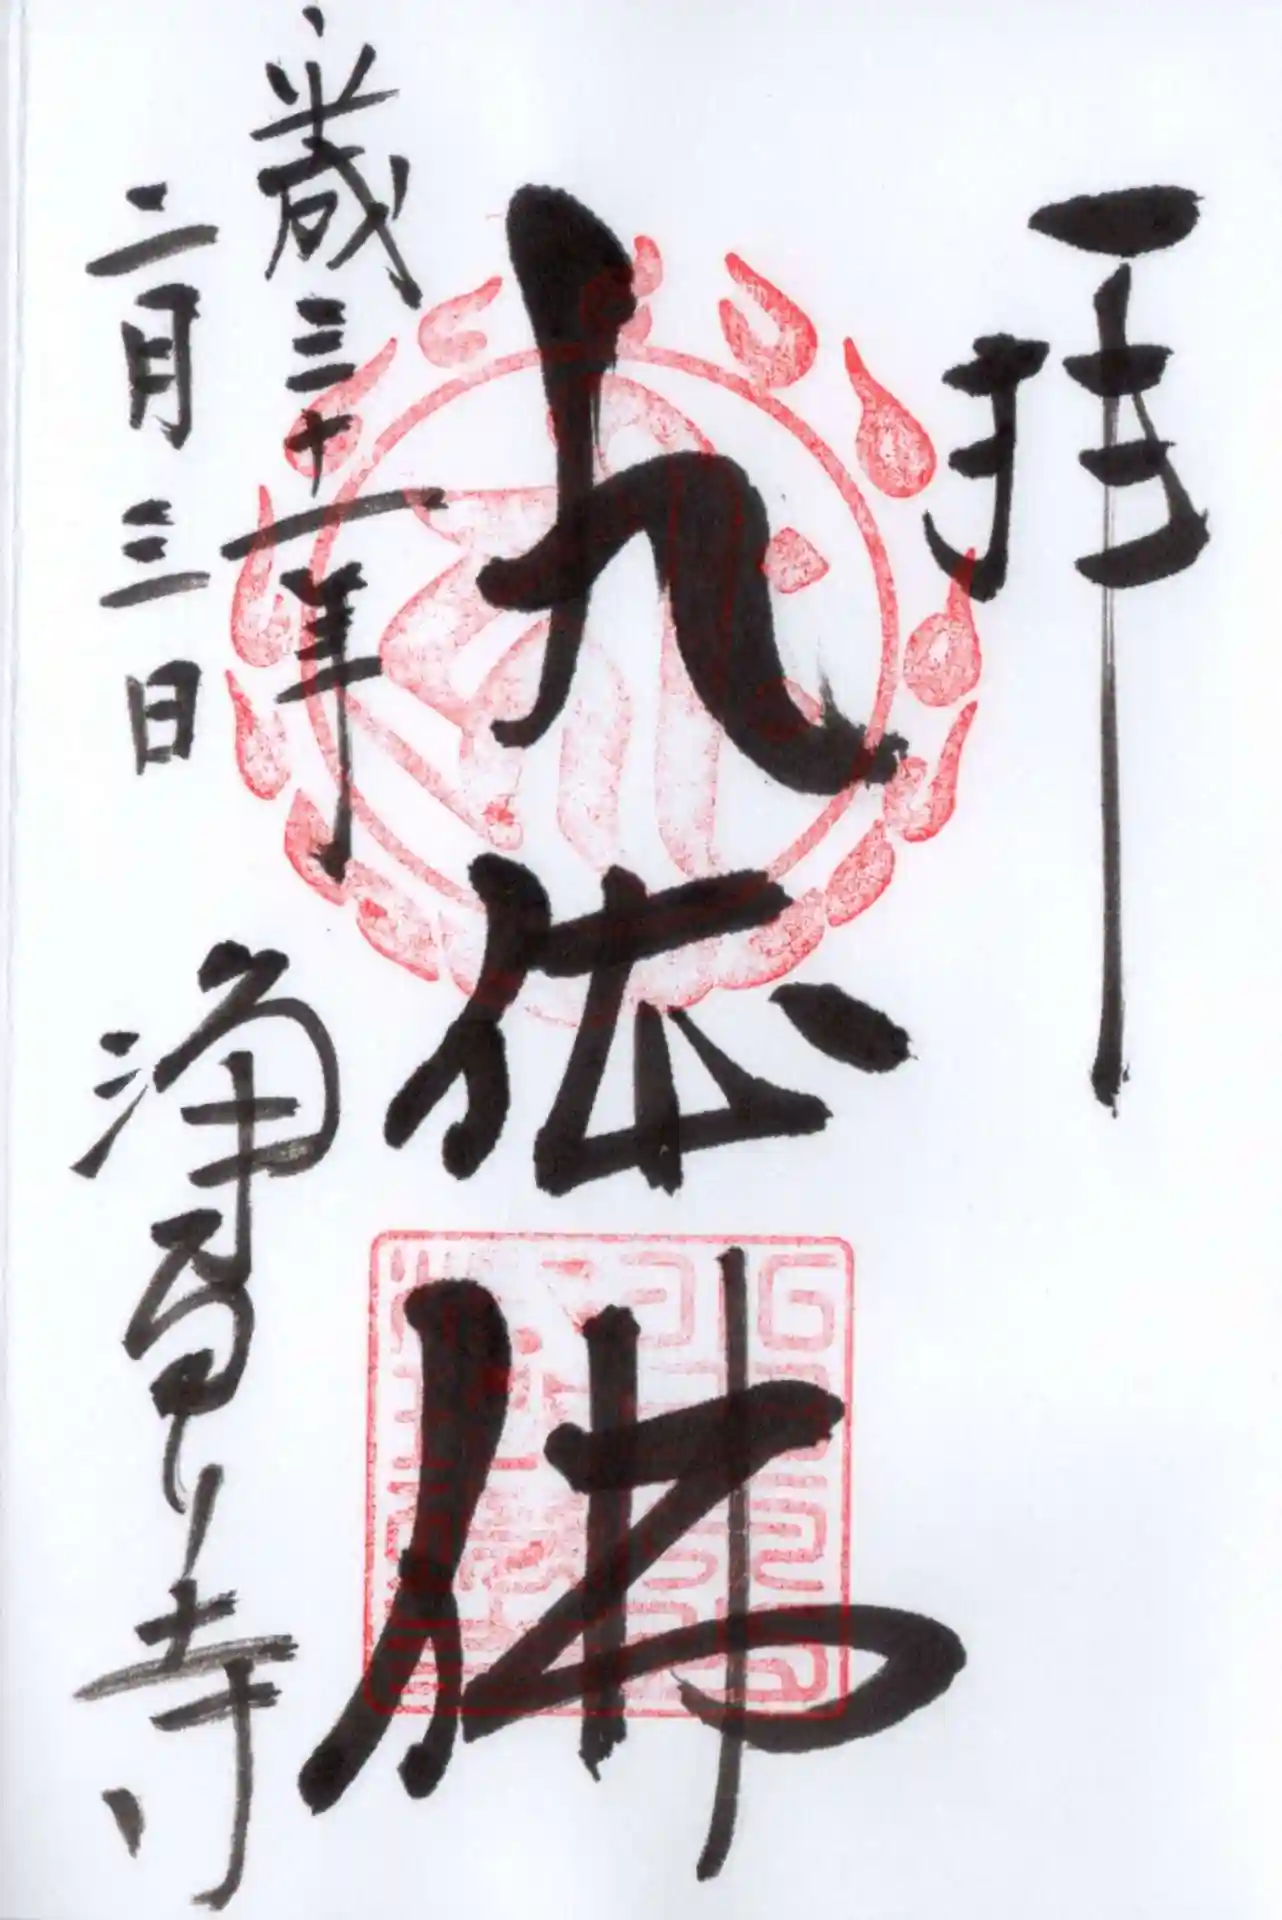 拝
九体佛
平成三十一年
二月三日
浄瑠璃寺